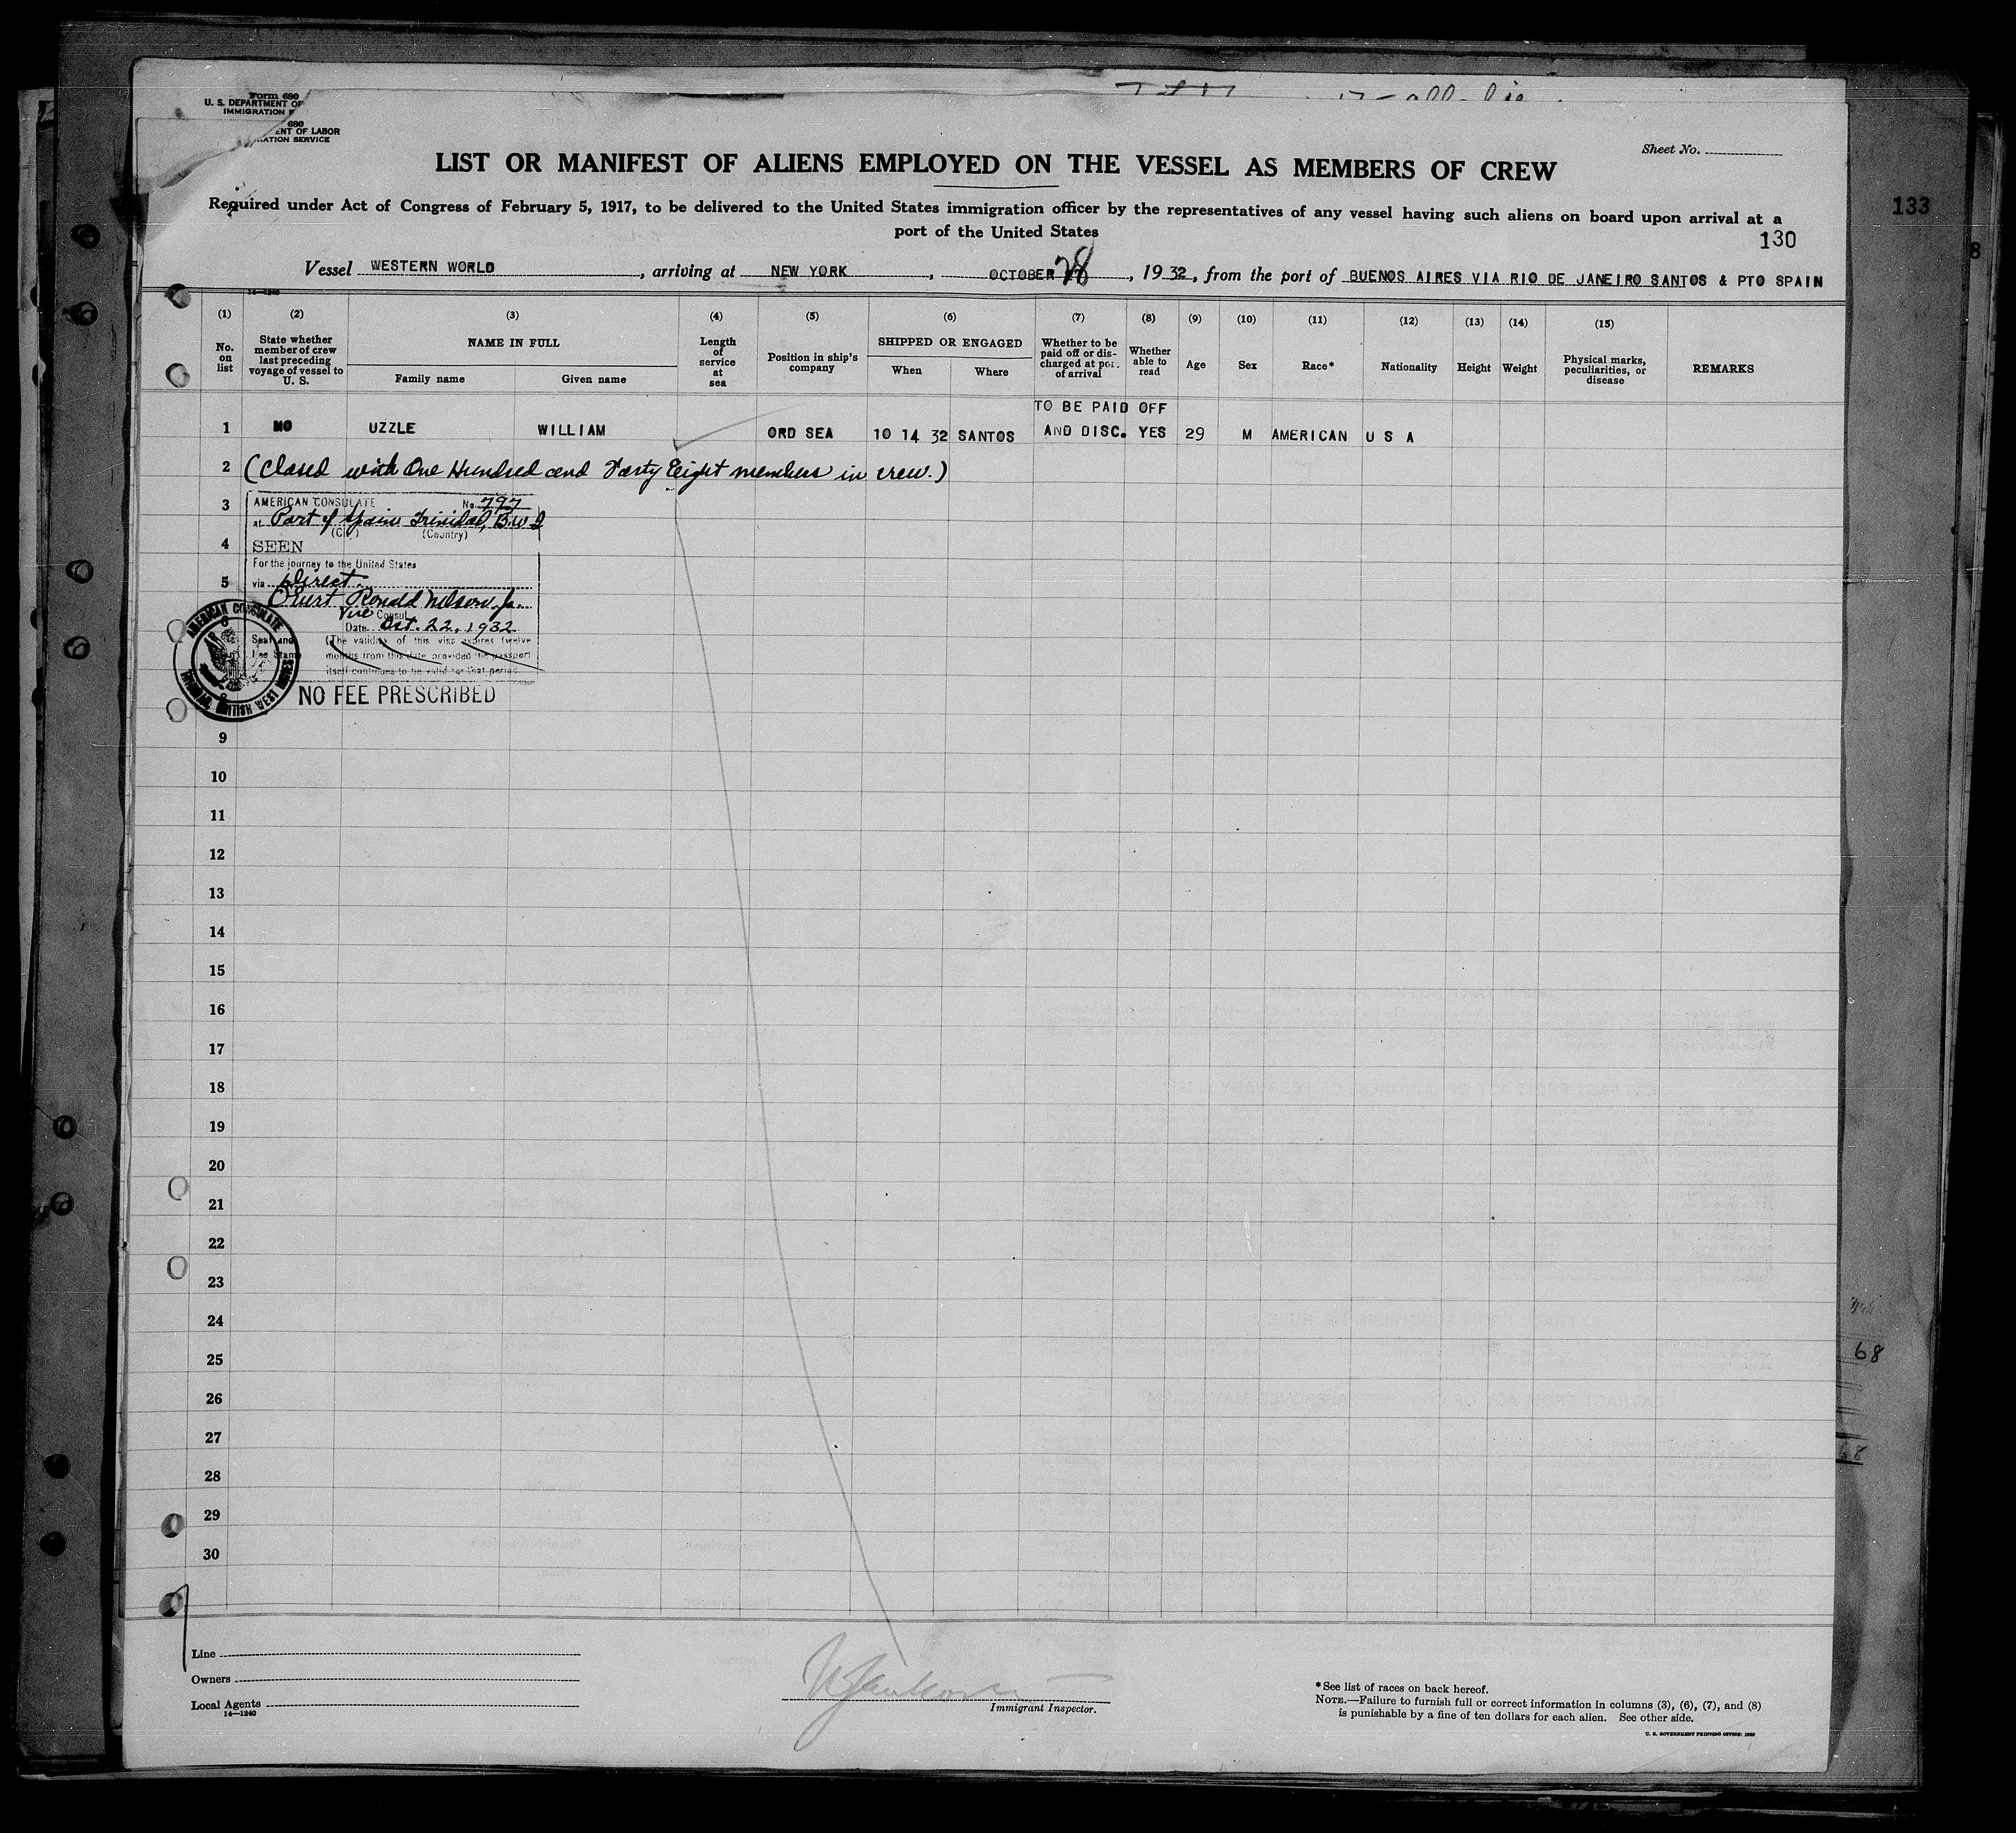 Form 680
U. S. DEPARTMENT OF
IMMIGRATION
680
ENT OF LABOR
ATION SERVICE
Sheet No.
LIST OR MANIFEST OF ALIENS EMPLOYED ON THE VESSEL AS MEMBERS OF CREW
Required under Act of Congress of February 5, 1917, to be delivered to the United States immigration officer by the representatives of any vessel having such aliens on board upon arrival at a
port of the United States
133
130
Vessel WESTERN WORLD, arriving at NEW YORK, OCTOBER 28, 1932, from the port of BUENOS AIRES VIA RIO DE JANEIRO SANTOS & PTO SPAIN
14—1240
(1) (2) (3) (4) (5) (6) (7) (8) (9) (10) (11) (12) (13) (14) (15)
No. on list
State whether member of crew last preceding voyage of vessel to U. S.
NAME IN FULL
Family name
Given name
Length of service at sea
Position in ship's company
SHIPPED OR ENGAGED
When
Where
Whether to be paid off or discharged at port of arrival
Whether able to read
Age
Sex
Race*
Nationality
Height
Weight
Physical marks, peculiarities, or disease
REMARKS
TO BE PAID OFF
1 NO UZZLE WILLIAM ORD SEA 10 14 32 SANTOS AND DISC. YES 29 M AMERICAN U S A
2 (Closed with One Hundred and Forty Eight members in crew.)
3
AMERICAN CONSULATE No. 797
at Port of Spain Trinidad, B.W.I
(City) (Country)
4
SEEN
For the journey to the United States
5
via Direct.
Ronald Nelson, Jr.
Vice Consul
Date Oct. 22, 1932
Seal and
Fee Stamp
(The validity of this visa expires twelve
months from this date provided the passport
itself continues to be valid for that period
AMERICAN CONSULATE
TRINIDAD, BRITISH WEST INDIES
NO FEE PRESCRIBED
9
10
11
12
13
14
15
16
17
18
19
20
21
22
23
24
25
26
27
28
29
30
68
68
Line
Owners
Local Agents
14—1240
Immigrant Inspector.
*See list of races on back hereof.
NOTE.—Failure to furnish full or correct information in columns (3), (6), (7), and (8)
is punishable by a fine of ten dollars for each alien. See other side.